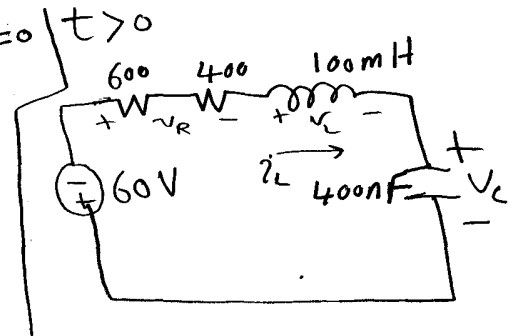 =0 t>0
600 400 100mH
+ VR - + VL -
iL
- + 60V 400nF + VC -